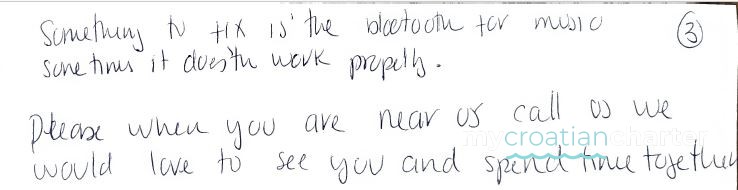 Something to fix is the bluetooth for music
sometimes it doesn't work propelly.
3
Please when you are near us call us we
would love to see you and spend time together
mycroatiancharter